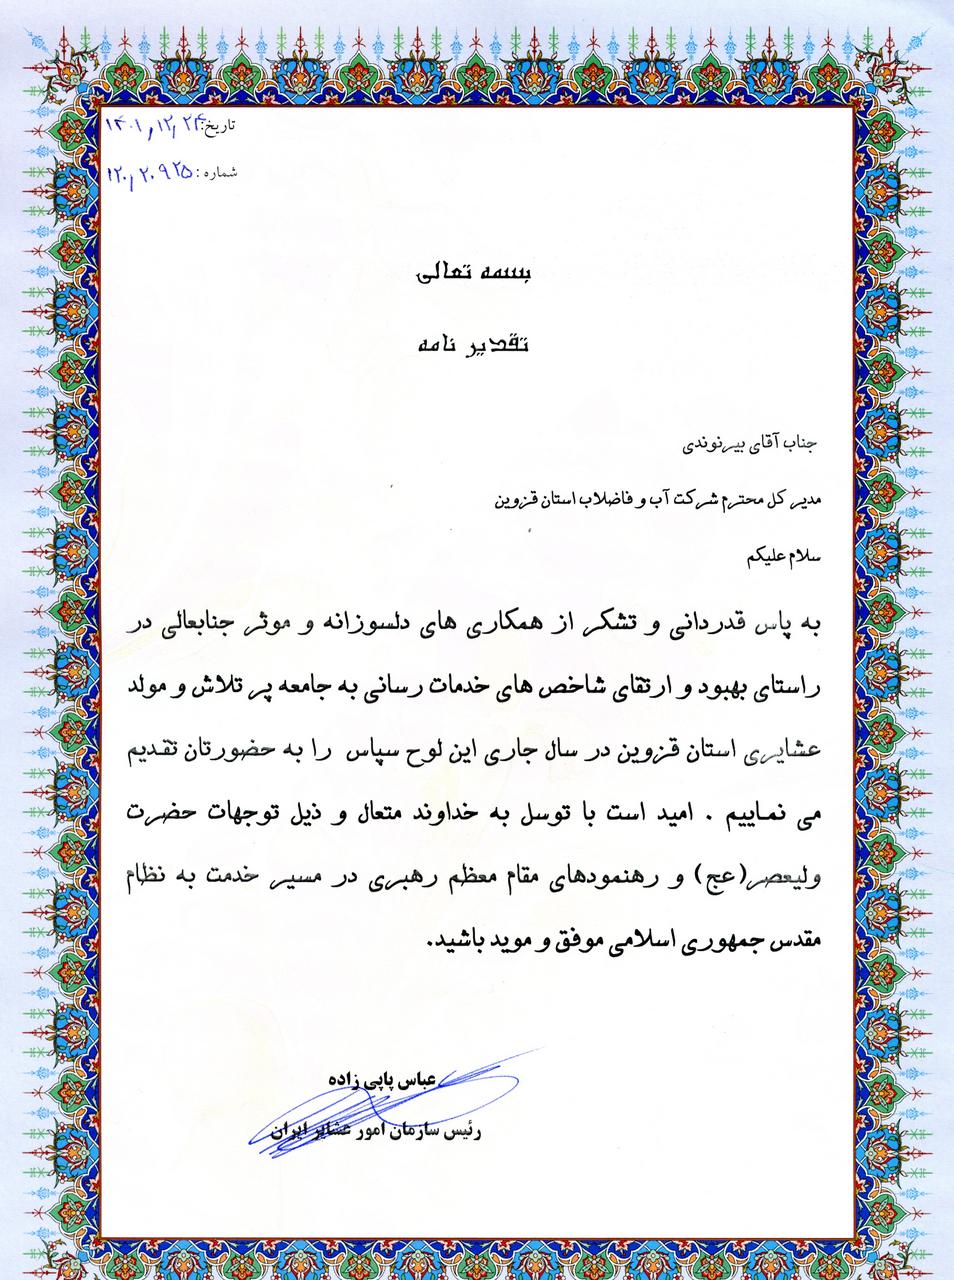 تاریخ: ۱۴۰۱/۱۲/۲۴
شماره: ۱۲۰/۲۰۹۲۵
بسمه تعالی
تقدیر نامه
جناب آقای بیرنوندی
مدیر کل محترم شرکت آب و فاضلاب استان قزوین
سلام علیکم
به پاس قدردانی و تشکر از همکاری های دلسوزانه و موثر جنابعالی در
راستای بهبود و ارتقای شاخص های خدمات رسانی به جامعه پر تلاش و مولد
عشایری استان قزوین در سال جاری این لوح سپاس را به حضورتان تقدیم
می نماییم . امید است با توسل به خداوند متعال و ذیل توجهات حضرت
ولیعصر(عج) و رهنمودهای مقام معظم رهبری در مسیر خدمت به نظام
مقدس جمهوری اسلامی موفق و موید باشید.
عباس پاپی زاده
رئیس سازمان امور عشایر ایران